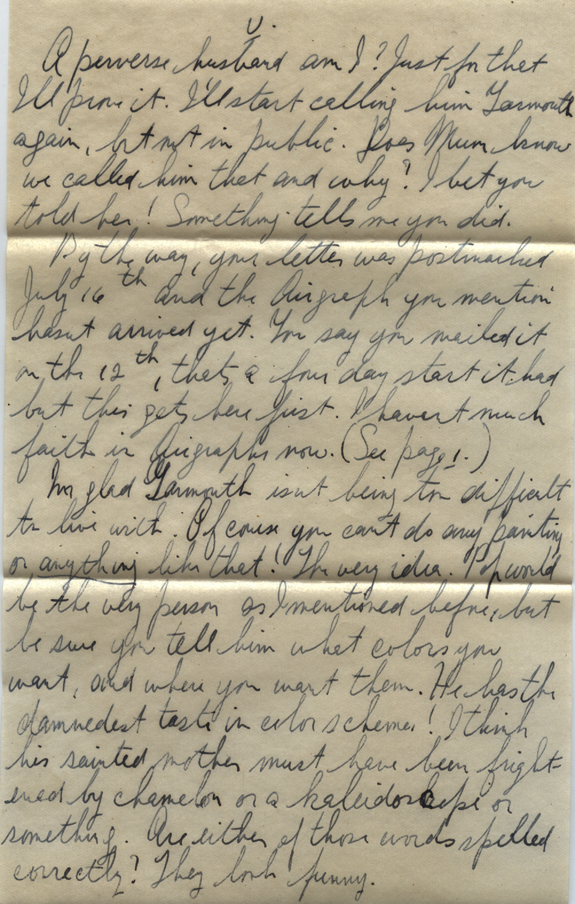 V.
A perverse husband am I? Just for that
I'll prove it. I'll start calling him Yarmouth
again, but not in public. Does Mum know
we called him that and why? I bet you
told her! Something tells me you did.
By the way, your letter was postmarked
July 16th and the Airgraph you mention
hasnt arrived yet. You say you mailed it
on the 12th, thats a four day start it had
but this gets here first. I havent much
faith in Airgraphs now. (See page 1.)
Im glad Yarmouth isnt being too difficult
to live with. Of course you can't do any painting
or anything like that! The very idea. Pop would
be the very person as I mentioned before, but
be sure you tell him what colors you
want, and where you want them. He has the
damnedest taste in color schemes! I think
his sainted mother must have been fright-
ened by chamelon or a kaleidoscope or
something. Are either of those words spelled
correctly? They look funny.